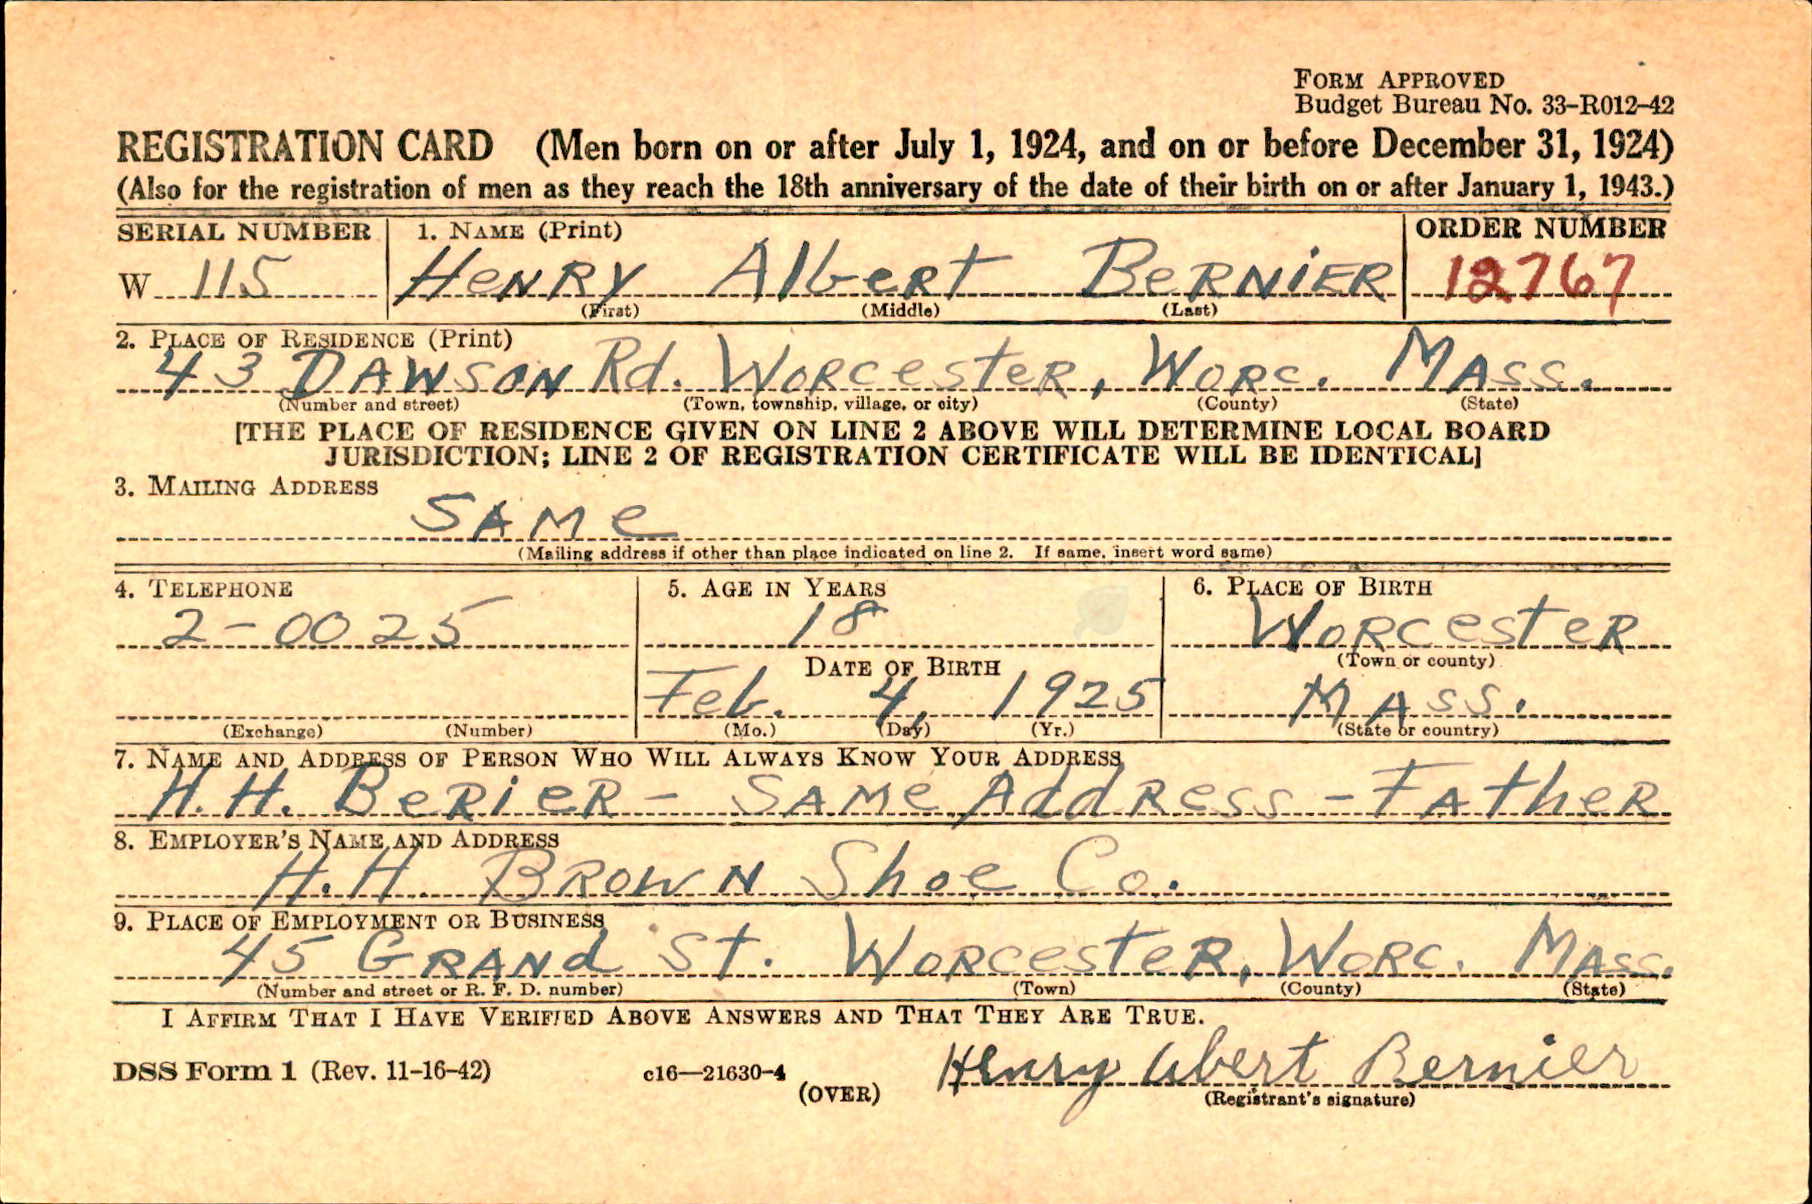 FORM APPROVED
Budget Bureau No. 33-R012-42
REGISTRATION CARD (Men born on or after July 1, 1924, and on or before December 31, 1924)
(Also for the registration of men as they reach the 18th anniversary of the date of their birth on or after January 1, 1943.)
SERIAL NUMBER 1. NAME (Print) ORDER NUMBER
W 115 HENRY Albert BERNIER 12767
(First) (Middle) (Last)
2. PLACE OF RESIDENCE (Print)
43 DAWSON Rd. WORCESTER, WORC. MASS.
(Number and street) (Town, township, village, or city) (County) (State)
[THE PLACE OF RESIDENCE GIVEN ON LINE 2 ABOVE WILL DETERMINE LOCAL BOARD
JURISDICTION; LINE 2 OF REGISTRATION CERTIFICATE WILL BE IDENTICAL]
3. MAILING ADDRESS
SAME
(Mailing address if other than place indicated on line 2. If same, insert word same)
4. TELEPHONE 5. AGE IN YEARS 6. PLACE OF BIRTH
2-0025 18 WORCESTER
DATE OF BIRTH (Town or county)
Feb. 4, 1925 MASS.
(Exchange) (Number) (Mo.) (Day) (Yr.) (State or country)
7. NAME AND ADDRESS OF PERSON WHO WILL ALWAYS KNOW YOUR ADDRESS
H. H. BERIER - SAME AddRess - FATHER
8. EMPLOYER'S NAME AND ADDRESS
H. H. BROWN Shoe Co.
9. PLACE OF EMPLOYMENT OR BUSINESS
45 GRANd St. WORCESTER, WORC. MASS.
(Number and street or R. F. D. number) (Town) (County) (State)
I AFFIRM THAT I HAVE VERIFIED ABOVE ANSWERS AND THAT THEY ARE TRUE.
DSS Form 1 (Rev. 11-16-42) c16—21630-4 (OVER) Henry Albert Bernier
(Registrant's signature)